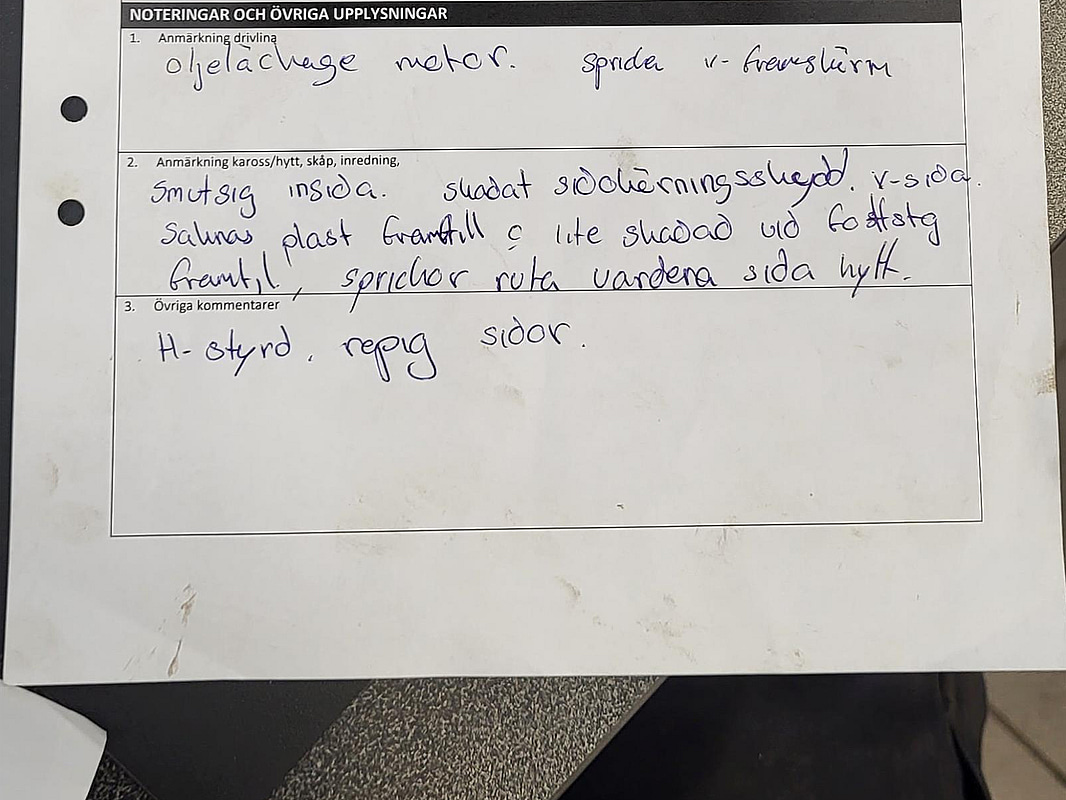 NOTERINGAR OCH ÖVRIGA UPPLYSNINGAR
1. Anmärkning drivlina
oljeläckage motor. spricka v-framskärm
2. Anmärkning kaross/hytt, skåp, inredning,
Smutsig insida. skadat sidokörningsskydd. v-sida.
Saknas plast framtill & lite skadad vid fotstg
framtil, sprickor ruta vardera sida hytt.
3. Övriga kommentarer
H-styrd. repig sidor.